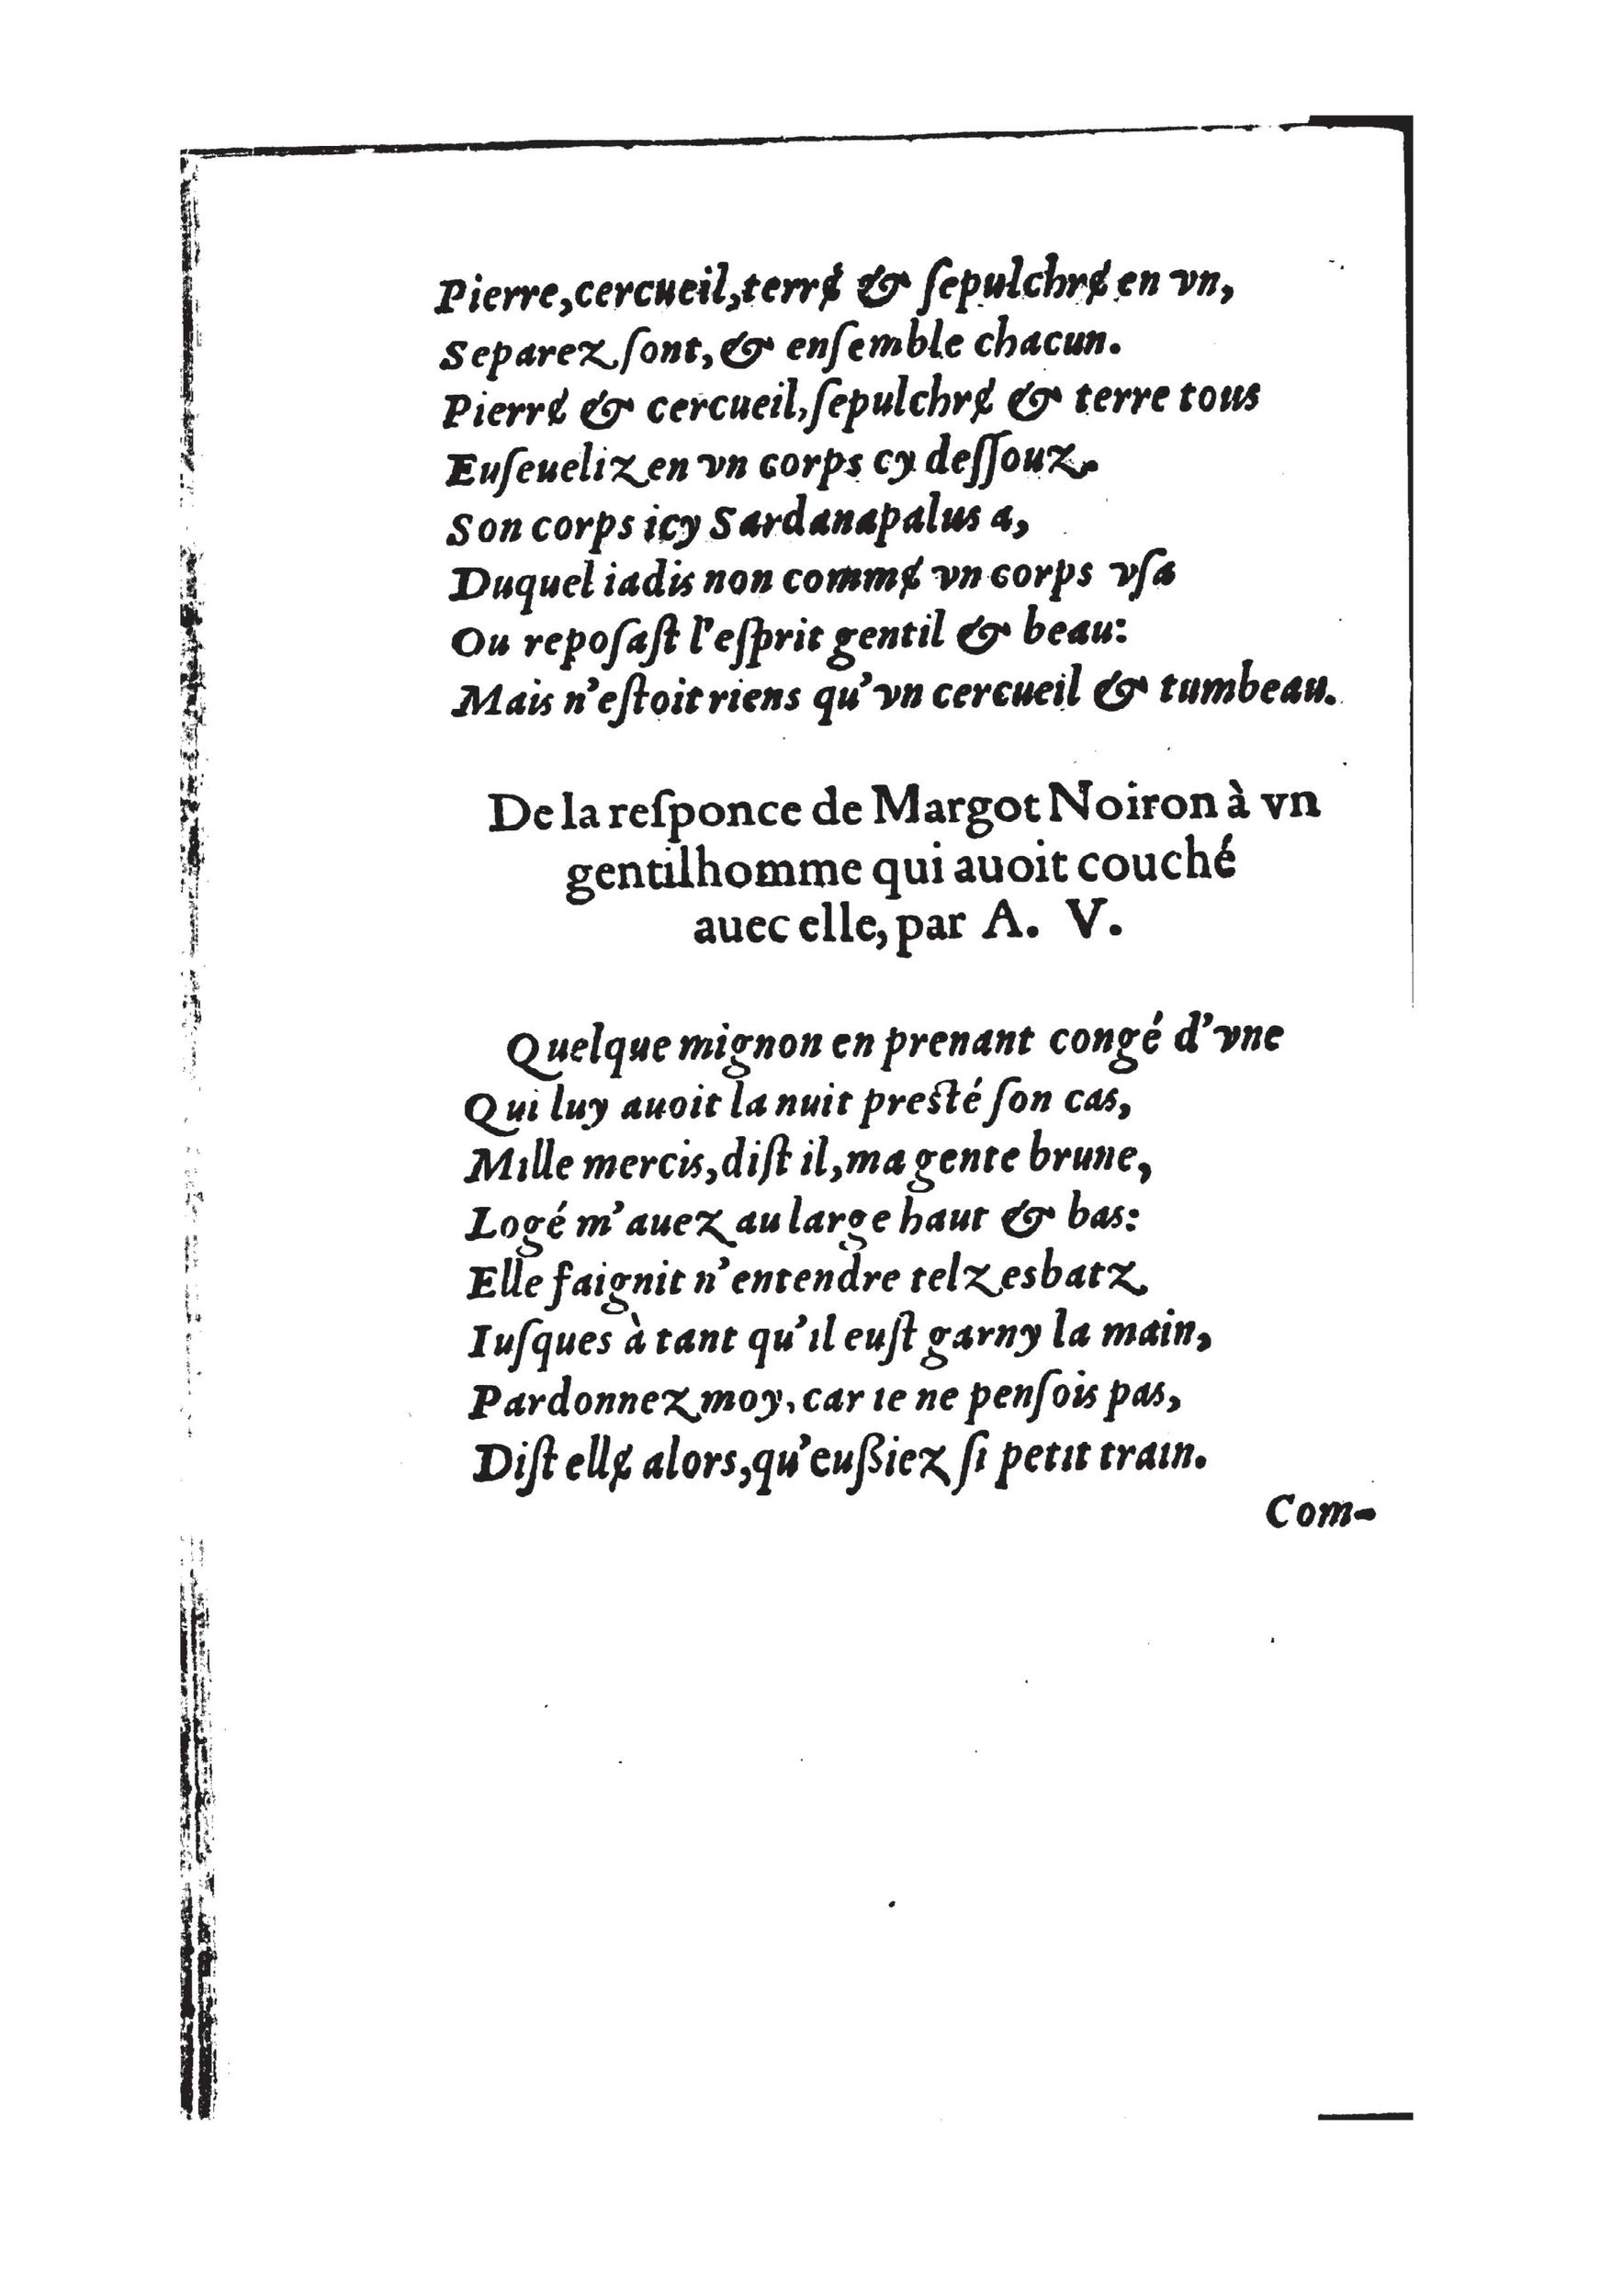 Pierre, cercueil, terrɇ & ſepulchrɇ en vn,
Separez ſont, & enſemble chacun.
Pierrɇ & cercueil, ſepulchrɇ & terre tous
Euſeueliz en vn corps cy deſſouz.
Son corps icy Sardanapalus a,
Duquel iadis non commɇ vn corps vſa
Ou repoſaſt l'eſprit gentil & beau:
Mais n'eſtoit riens qu'vn cercueil & tumbeau.
De la reſponce de Margot Noiron à vn
gentilhomme qui auoit couché
auec elle, par A. V.
Quelque mignon en prenant congé d'vne
Qui luy auoit la nuit preſté ſon cas,
Mille mercis, diſt il, ma gente brune,
Logé m'auez au large haut & bas:
Elle faignit n'entendre telz esbatz
Iuſques à tant qu'il euſt garny la main,
Pardonnez moy, car ie ne penſois pas,
Diſt ellɇ alors, qu'eußiez ſi petit train.
Com-